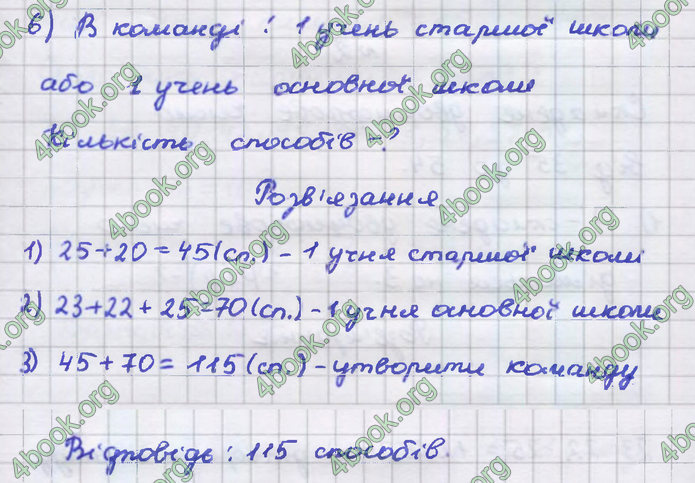 б) В команді: 1 учень старшої школи
або 1 учень основної школи
Кількість способів - ?
Розв'язання
1) 25+20=45(сп.) - 1 учня старшої школи
2) 23+22+25=70(сп.) - 1 учня основної школи
3) 45+70=115(сп.) - утворити команду
Відповідь: 115 способів.
4book.org